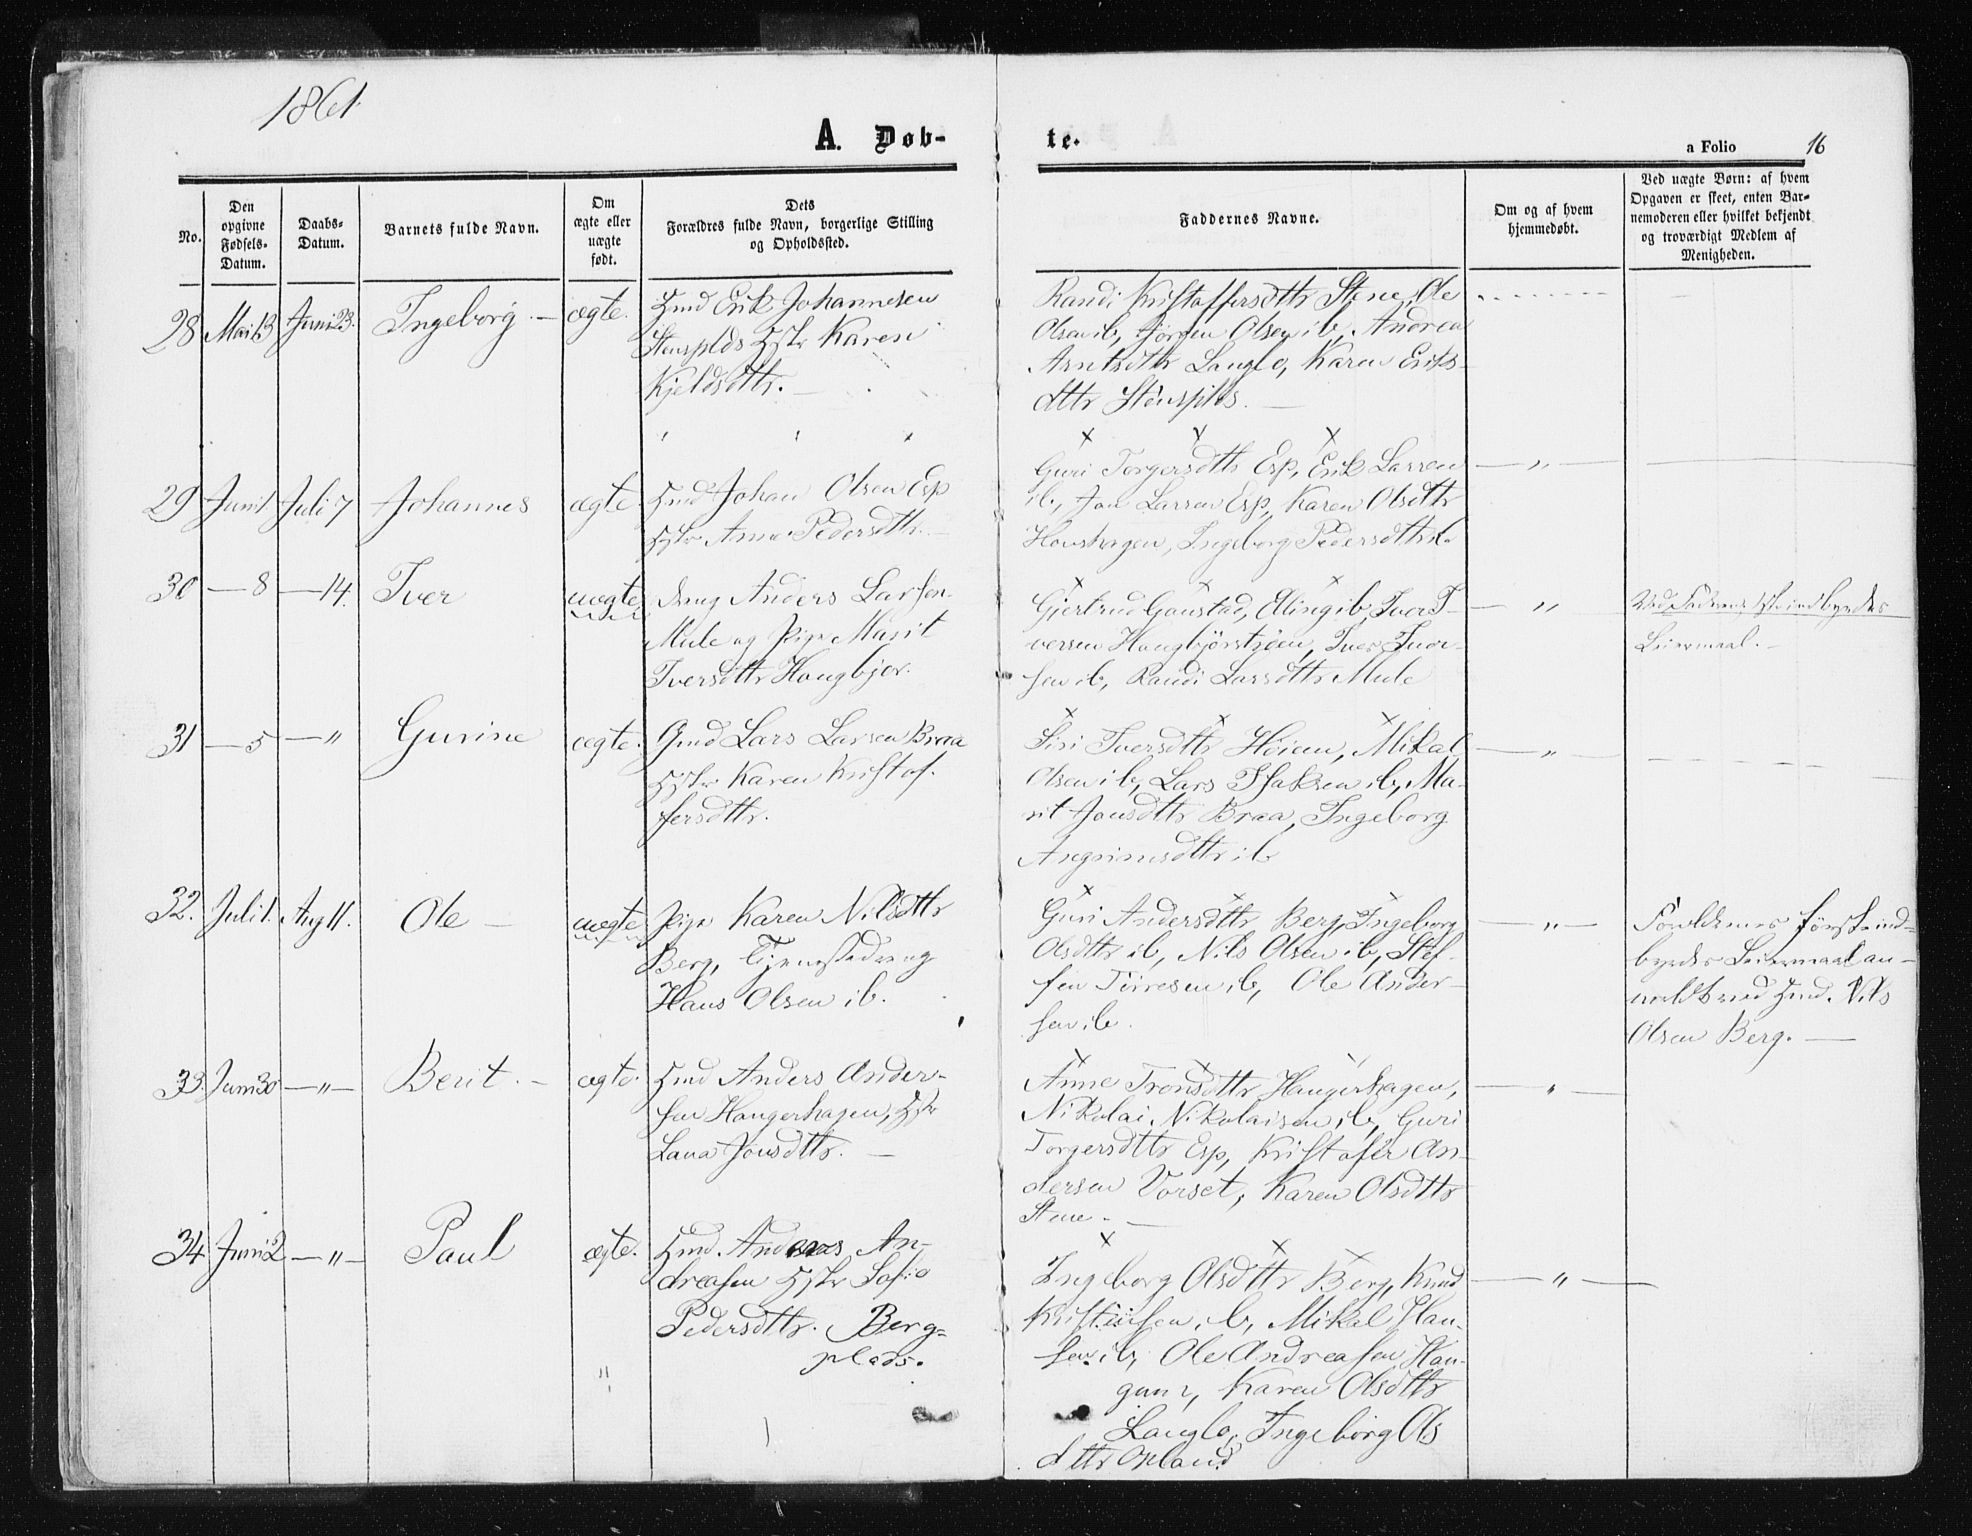 1861
A. Døb-
te.
a Folio 16
No.
Den opgivne Fødsels-Datum.
Daabs-Datum.
Barnets fulde Navn.
Om ægte eller uægte født.
Dets Forældres fulde Navn, borgerlige Stilling og Opholdssted.
Faddernes Navne.
Om og af hvem hjemmedøbt.
Ved uægte Børn: af hvem Opgaven er skeet, enten Barnemoderen eller hvilket bekjendt og troværdigt Medlem af Menigheden.
28 Mai 13 Juni 23. Ingeborg. – ægte.
Hmd Erik Johannesen
Stensplds Hstr Karen
Kjeldsdttr. –
Randi Kristoffersdttr Stene, Ole
Olsen ib, Jørgen Olsen ib, Andrea
Arntsdttr Langlo, Karen Eriks
dttr Stensplds. –
29 Juni 1 Juli 7 Johannes ægte
Hmd Johan Olsen Esp
Hstr Anne Pedersdttr. –
Guri Torgersdttr Esp, Erik Larsen
ib, Jon Larsen Esp, Karen Olsdttr
Ingeborg Pedersdttr ib.
30 – 8 – 14. Iver uægte
Anders Larsen
Mule og Pige Marit
Iversdttr Haugbjør.
Gjertrud Gaustad, Elling ib, Iver I-
versen Iver Iver-
sen ib, Randi Larsdttr Mule
Leiermaal. –
31 – 5 – " Gurine ægte.
Gmd Lars Larsen Braa
Hstr Karen Kristof-
fersdttr.
Siri Iversdttr Høien, Mikal
Olsen ib, Lars Isaksen ib, Ma-
rit Jonsdttr Braa, Ingeborg
Arngrimsdttr ib
32. Juli 1. Aug 11. Ole – uægte
Pige Karen Nilsdttr
Berg, Tjenestedreng
Hans Olsen ib.
Guri Andersdttr Berg, Ingeborg
Olsdttr ib, Nils Olsen ib, Stef-
fen Tørresen ib, Ole Ander-
sen ib.
Forældrenes første ind-
byrdes Leiermaal an-
meldt ved Hmd. Nils
Olsen Berg. –
33. Juni 30 – " – Berit. – ægte.
Hmd Anders Ander-
sen Haugerhagen, Hstr
Lana Jonsdttr. –
Anne Tronsdttr Haugerhagen,
Nikolai Nikolaisen ib, Guri
Torgersdttr Esp, Kristofer An
dersen Vorset, Karen Olsdttr
Stene. –
34 Juni 2 – " – Paul ægte.
Hmd. Anders An-
dreasen Hstr Sofie
Pedersdttr. Berg-
plads.
Ingeborg Olsdttr Berg, Knud
Kristensen ib, Mikal Han-
sen ib, Ole Andreasen Hau-
gan, Karen Olsdttr
Langlo, Ingeborg Ols
dttr Opland